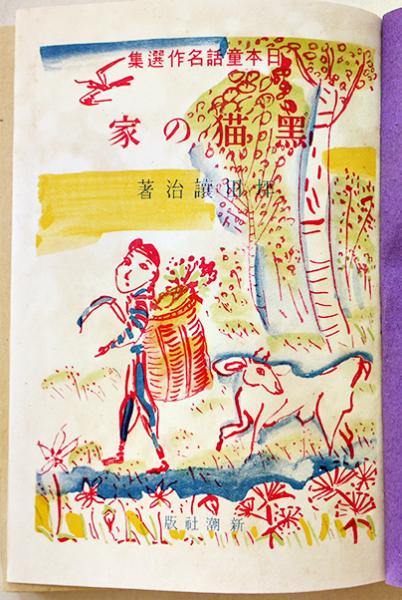 日本童話名作選集
黑猫の家
坪田讓治著
新潮社版